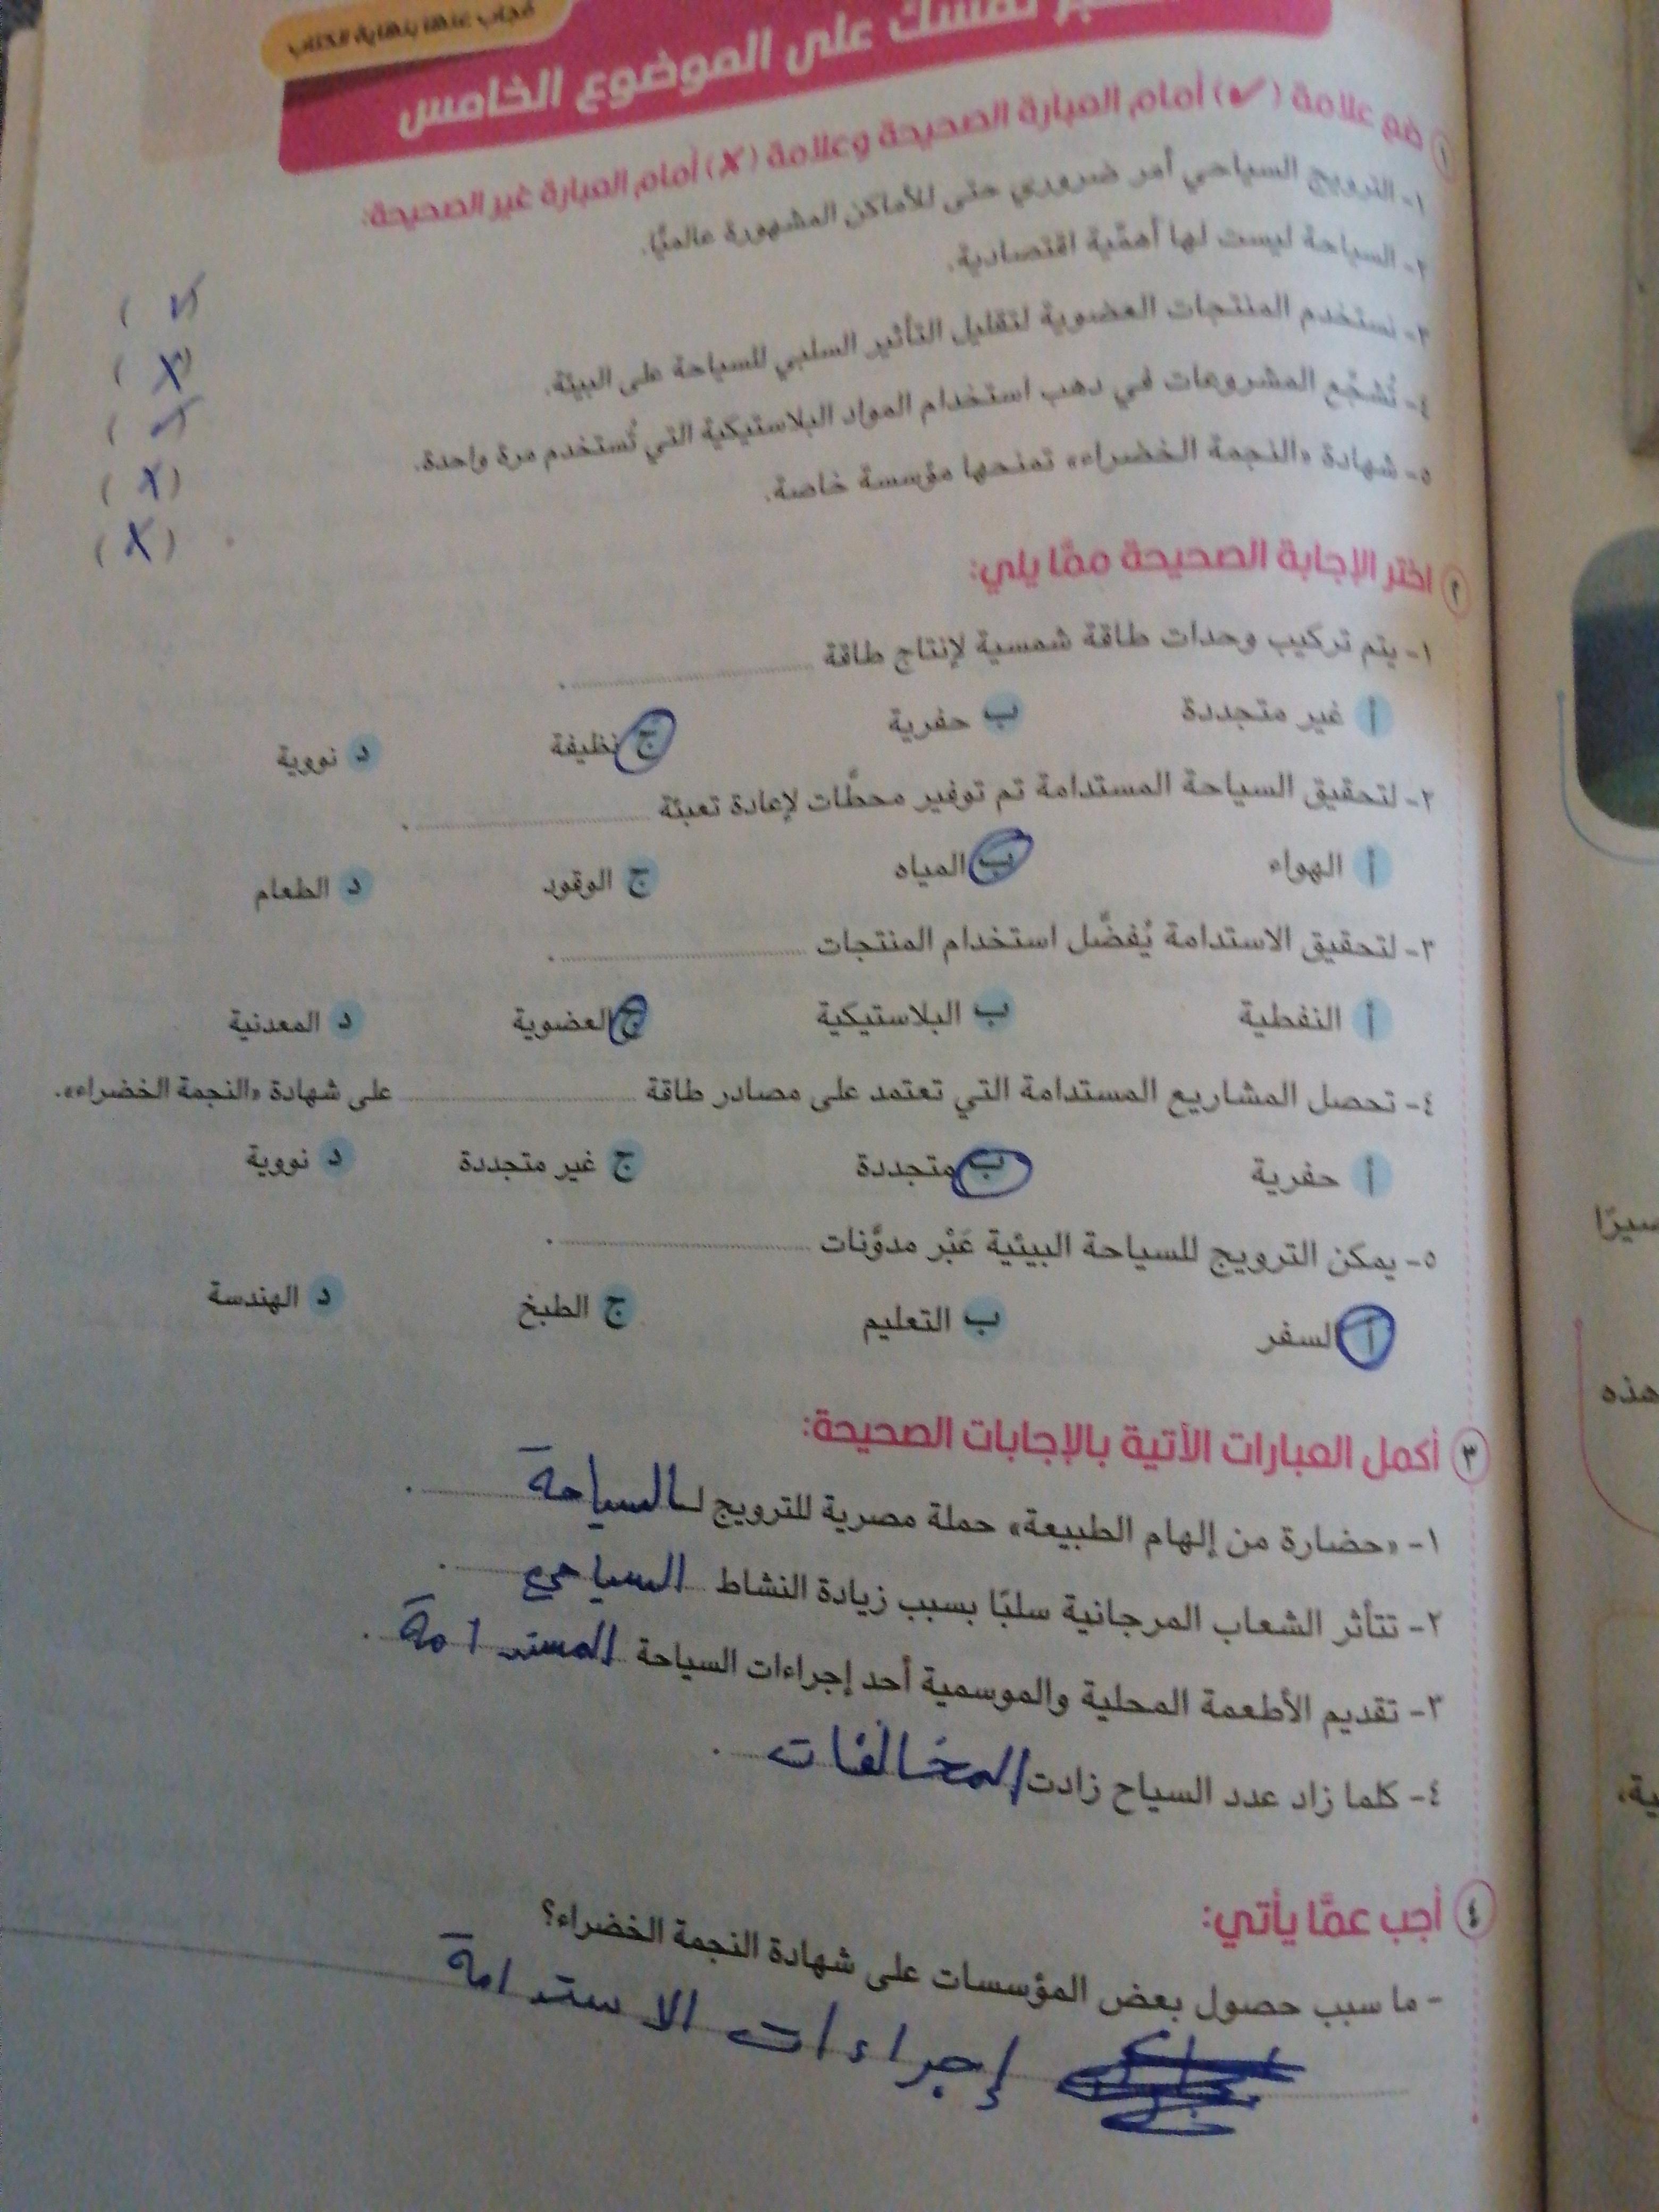 مجاب عنها بنهاية الكتاب
نفسك على الموضوع الخامس
١ ضع علامة (✓) أمام العبارة الصحيحة وعلامة (✗) أمام العبارة غير الصحيحة:
١- الترويج السياحي أمر ضروري حتى للأماكن المشهورة عالميًّا. ( ✓
٢- السياحة ليست لها أهمِّية اقتصادية. ( X )
٣- نستخدم المنتجات العضوية لتقليل التأثير السلبي للسياحة على البيئة. ( ✓
٤- تُشجِّع المشروعات في دهب استخدام المواد البلاستيكية التي تُستخدم مرة واحدة. ( X )
٥- شهادة «النجمة الخضراء» تمنحها مؤسسة خاصة. ( X )
٢ اختر الإجابة الصحيحة ممَّا يلي:
١- يتم تركيب وحدات طاقة شمسية لإنتاج طاقة .
أ غير متجددة ب حفرية ج نظيفة د نووية
٢- لتحقيق السياحة المستدامة تم توفير محطَّات لإعادة تعبئة .
أ الهواء ب المياه ج الوقود د الطعام
٣- لتحقيق الاستدامة يُفضَّل استخدام المنتجات .
أ النفطية ب البلاستيكية ج العضوية د المعدنية
٤- تحصل المشاريع المستدامة التي تعتمد على مصادر طاقة على شهادة «النجمة الخضراء».
أ حفرية ب متجددة ج غير متجددة د نووية
٥- يمكن الترويج للسياحة البيئية عَبْر مدوَّنات .
أ السفر ب التعليم ج الطبخ د الهندسة
٣ أكمل العبارات الآتية بالإجابات الصحيحة:
١- «حضارة من إلهام الطبيعة» حملة مصرية للترويج لـ السياحة .
٢- تتأثر الشعاب المرجانية سلبًا بسبب زيادة النشاط السياحي .
٣- تقديم الأطعمة المحلية والموسمية أحد إجراءات السياحة المستدامة .
٤- كلما زاد عدد السياح زادت المخالفات .
٤ أجب عمَّا يأتي:
- ما سبب حصول بعض المؤسسات على شهادة النجمة الخضراء؟
إجراءات الاستدامة
سيرًا
هذه
ية،